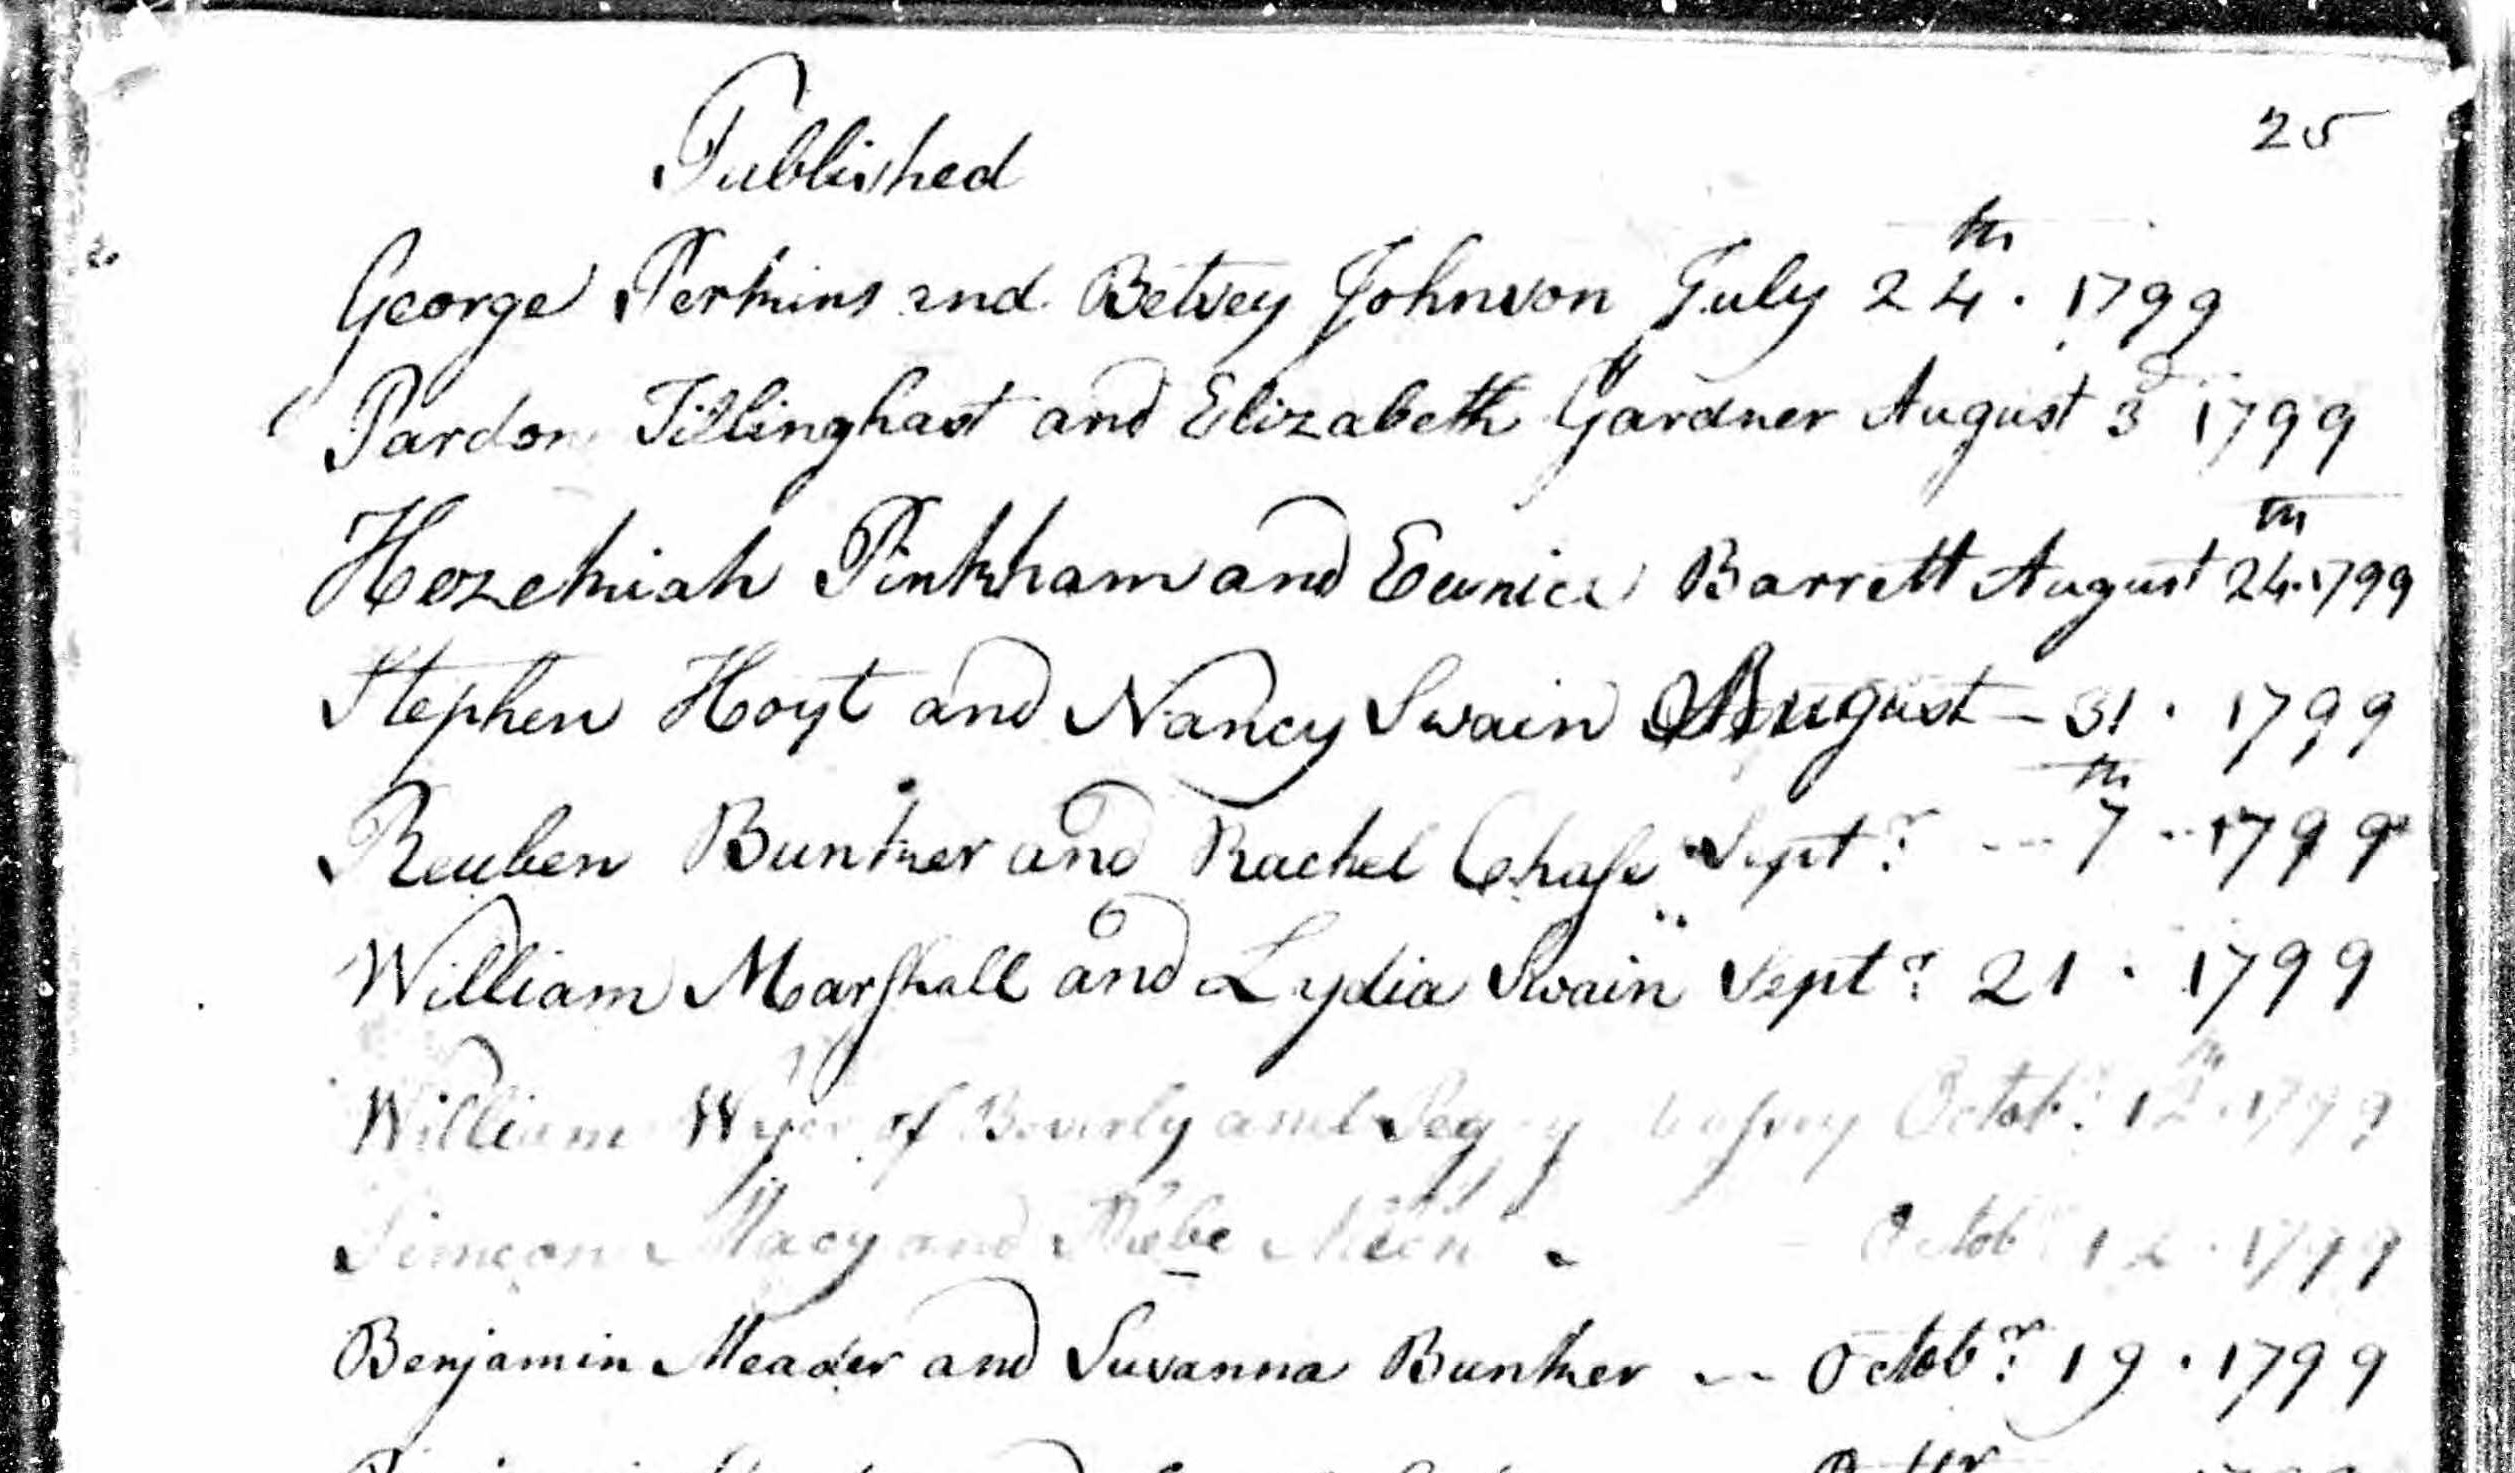 25
Published
George Perkins and Betsey Johnson July 24th. 1799
Pardon Tillinghast and Elizabeth Gardner August 3d 1799
Hezekiah Pinkham and Eunice Barrett August 24th. 1799
Stephen Hoyt and Nancy Swain August - 31. 1799
Reuben Bunker and Rachel Chase Septr. -- 7th - 1799
William Marshall and Lydia Swain Septr. 21. 1799
William Wyer of Beverly and Octobr. 12th. 1799
Simeon Macy and Phebe Octobr 12. 1799
Benjamin Meader and Susanna Bunker -- Octobr. 19. 1799